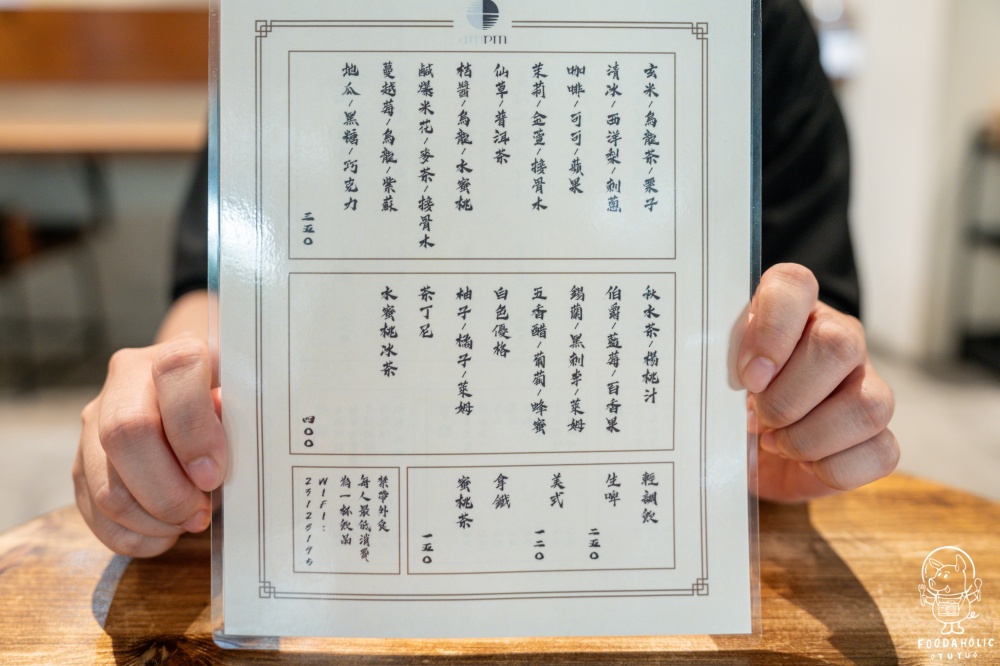 ampm
玄米/烏龍茶/栗子
清冰/西洋梨/刺蔥
咖啡/可可/蘋果
茉莉/金萱/接骨木
仙草/普洱茶
桔醬/烏龍/水蜜桃
鹹爆米花/麥茶/接骨木
蔓越莓/烏龍/紫蘇
地瓜/黑糖/巧克力
三五〇
秋水茶/楊桃汁
伯爵/藍莓/百香果
錫蘭/黑刺李/萊姆
五香醋/葡萄/蜂蜜
白色優格
柚子/橘子/萊姆
茶丁尼
水蜜桃冰茶
四〇〇
輕調飲
生啤 二五〇
美式 一二〇
拿鐵
蜜桃茶 一五〇
禁帶外食
每人最低消費
為一杯飲品
WIFI:
23128195
FOODAHOLIC
TUTU